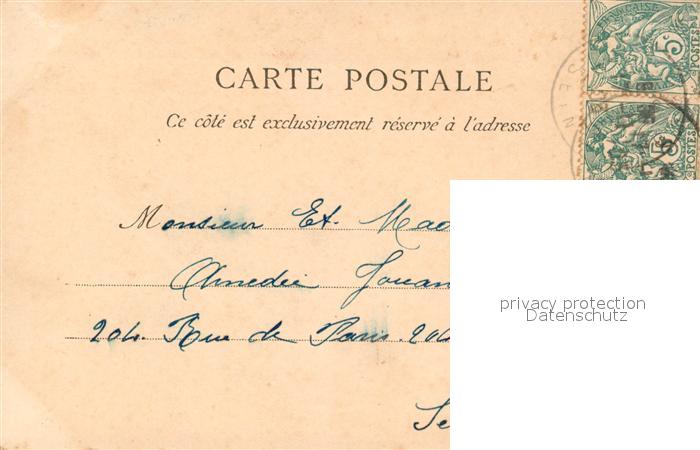 CARTE POSTALE
Ce côté est exclusivement réservé à l'adresse
5c
POSTES
5c
POSTES
SEIN
Monsieur Et. Mad
Amedée Jouan
204. Rue de Paris. 204
Se
privacy protection
Datenschutz